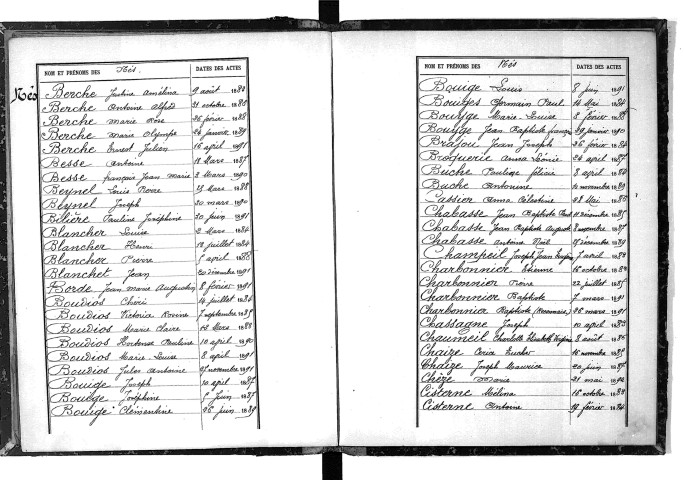 Nés
NOM ET PRÉNOMS DES Nés. DATES DES ACTES
Berche Justine Amélina 9 août 18
Berche Antoine Alfred 31 octobre 18
Berche Marie Rose 26 février 1888
Berche Marie Olympe 24 janvier 1889
Berche Ernest Julien 16 avril 1891
Besse Antoine 18 Mars 1887
Besse François Jean Marie 3 Mars 1890
Beynel Louis Pierre Mars 1888
Beynel Joseph 30 mars 1890
Bilière Pauline Joséphine 30 juin 1891
Blancher Louise 2 Mars 1884
Blancher Henri 18 juillet 1884
Blancher Pierre 5 avril 1886
Blanchet Jean 20 décembre 1891
Borde Jean Marie Augustin 8 février 1891
Boudios Chéri 14 juillet 1884
Boudios Victoria 7 septembre 1885
Boudios Marie Claire 13 Mars 1888
Boudios Hortense Pauline 10 avril 1890
Boudios Marie-Louise 8 avril 1891
Boudios Jules Antoine 27 novembre 1891
Bouige Joseph 10 avril 1887
Bouige Joséphine 5 juin 1887
Bouige Clémentine 26 juin 1889
NOM ET PRÉNOMS DES Nés DATES DES ACTES
Bouige Louis 8 juin 1891
Bouiges Germain Paul 14 Mai 1884
Bouyge Marie-Louise 8 février 18
Bouyge Jean Baptiste François 29 janvier 1890
Brajou Jean Joseph 26 février 1884
Broquerie Anna Léonie 24 avril 1887
Buche Pauline Félicie 8 avril 1884
Buche Antonine 10 novembre 1889
Cassier Anna Célestine 28 Mai 1886
Chabasse Jean Baptiste 11 décembre 1885
Chabasse Jean Baptiste Auguste 8 novembre 1887
Chabasse Antoine Noël décembre 1889
Champeil Joseph Jean 7 avril 1888
Charbonnier Etienne 16 octobre 1884
Charbonnier Pierre 22 juillet 1885
Charbonnier Baptiste 7 mars 1891
Charbonnier Baptiste 26 mars 1891
Chassagne Joseph 10 avril 1883
Chaumeil Charlotte Elisabeth 8 août 1886
Chaize 16 novembre 1885
Chaize Joseph Maurice 20 juin 1887
Chèze Marie 21 mai 1892
Cisterne Mélina 16 octobre 1884
Cisterne Antoine 19 février 1884